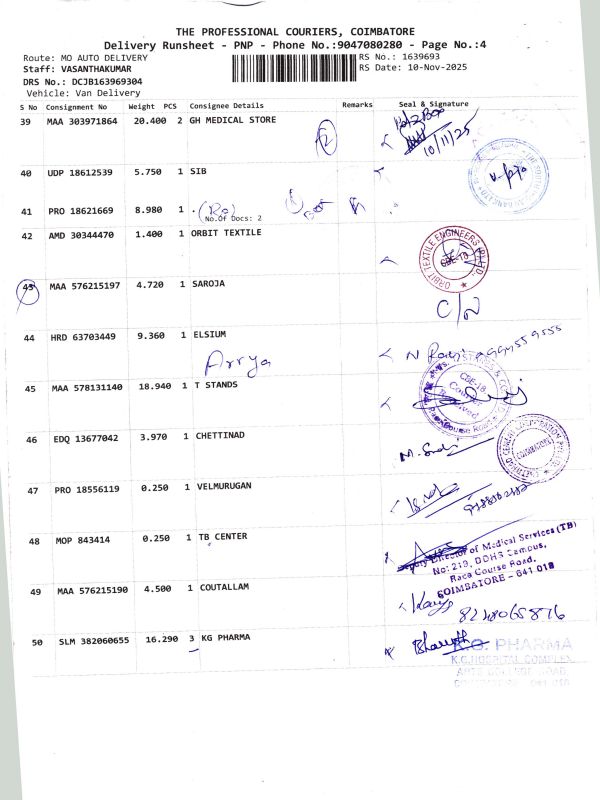 THE PROFESSIONAL COURIERS, COIMBATORE
Delivery Runsheet - PNP - Phone No.:9047080280 - Page No.:4
Route: MO AUTO DELIVERY
RS No.: 1639693
Staff: VASANTHAKUMAR
RS Date: 10-Nov-2025
DRS No.: DCJB163969304
Vehicle: Van Delivery
S No Consignment No Weight PCS Consignee Details Remarks Seal & Signature
39 MAA 303971864 20.400 2 GH MEDICAL STORE
10/11/25
40 UDP 18612539 5.750 1 SIB
41 PRO 18621669 8.980 1 .
No.Of Docs: 2
42 AMD 30344470 1.400 1 ORBIT TEXTILE
ORBIT TEXTILE ENGINEERS (P) LTD.,
CBE-18
43 MAA 576215197 4.720 1 SAROJA
44 HRD 63703449 9.360 1 ELSIUM
Arrya
45 MAA 578131140 18.940 1 T STANDS
CBE-18
Courier
Received
Race Course Road
46 EDQ 13677042 3.970 1 CHETTINAD
COIMBATORE
47 PRO 18556119 0.250 1 VELMURUGAN
48 MOP 843414 0.250 1 TB CENTER
Deputy Director of Medical Services (TB)
No: 219, DDHS Campus,
Race Course Road,
COIMBATORE - 641 018
49 MAA 576215190 4.500 1 COUTALLAM
50 SLM 382060655 16.290 3 KG PHARMA
K.G. PHARMA
K.G.HOSPITAL COMPLEX
ARTS COLLEGE ROAD,